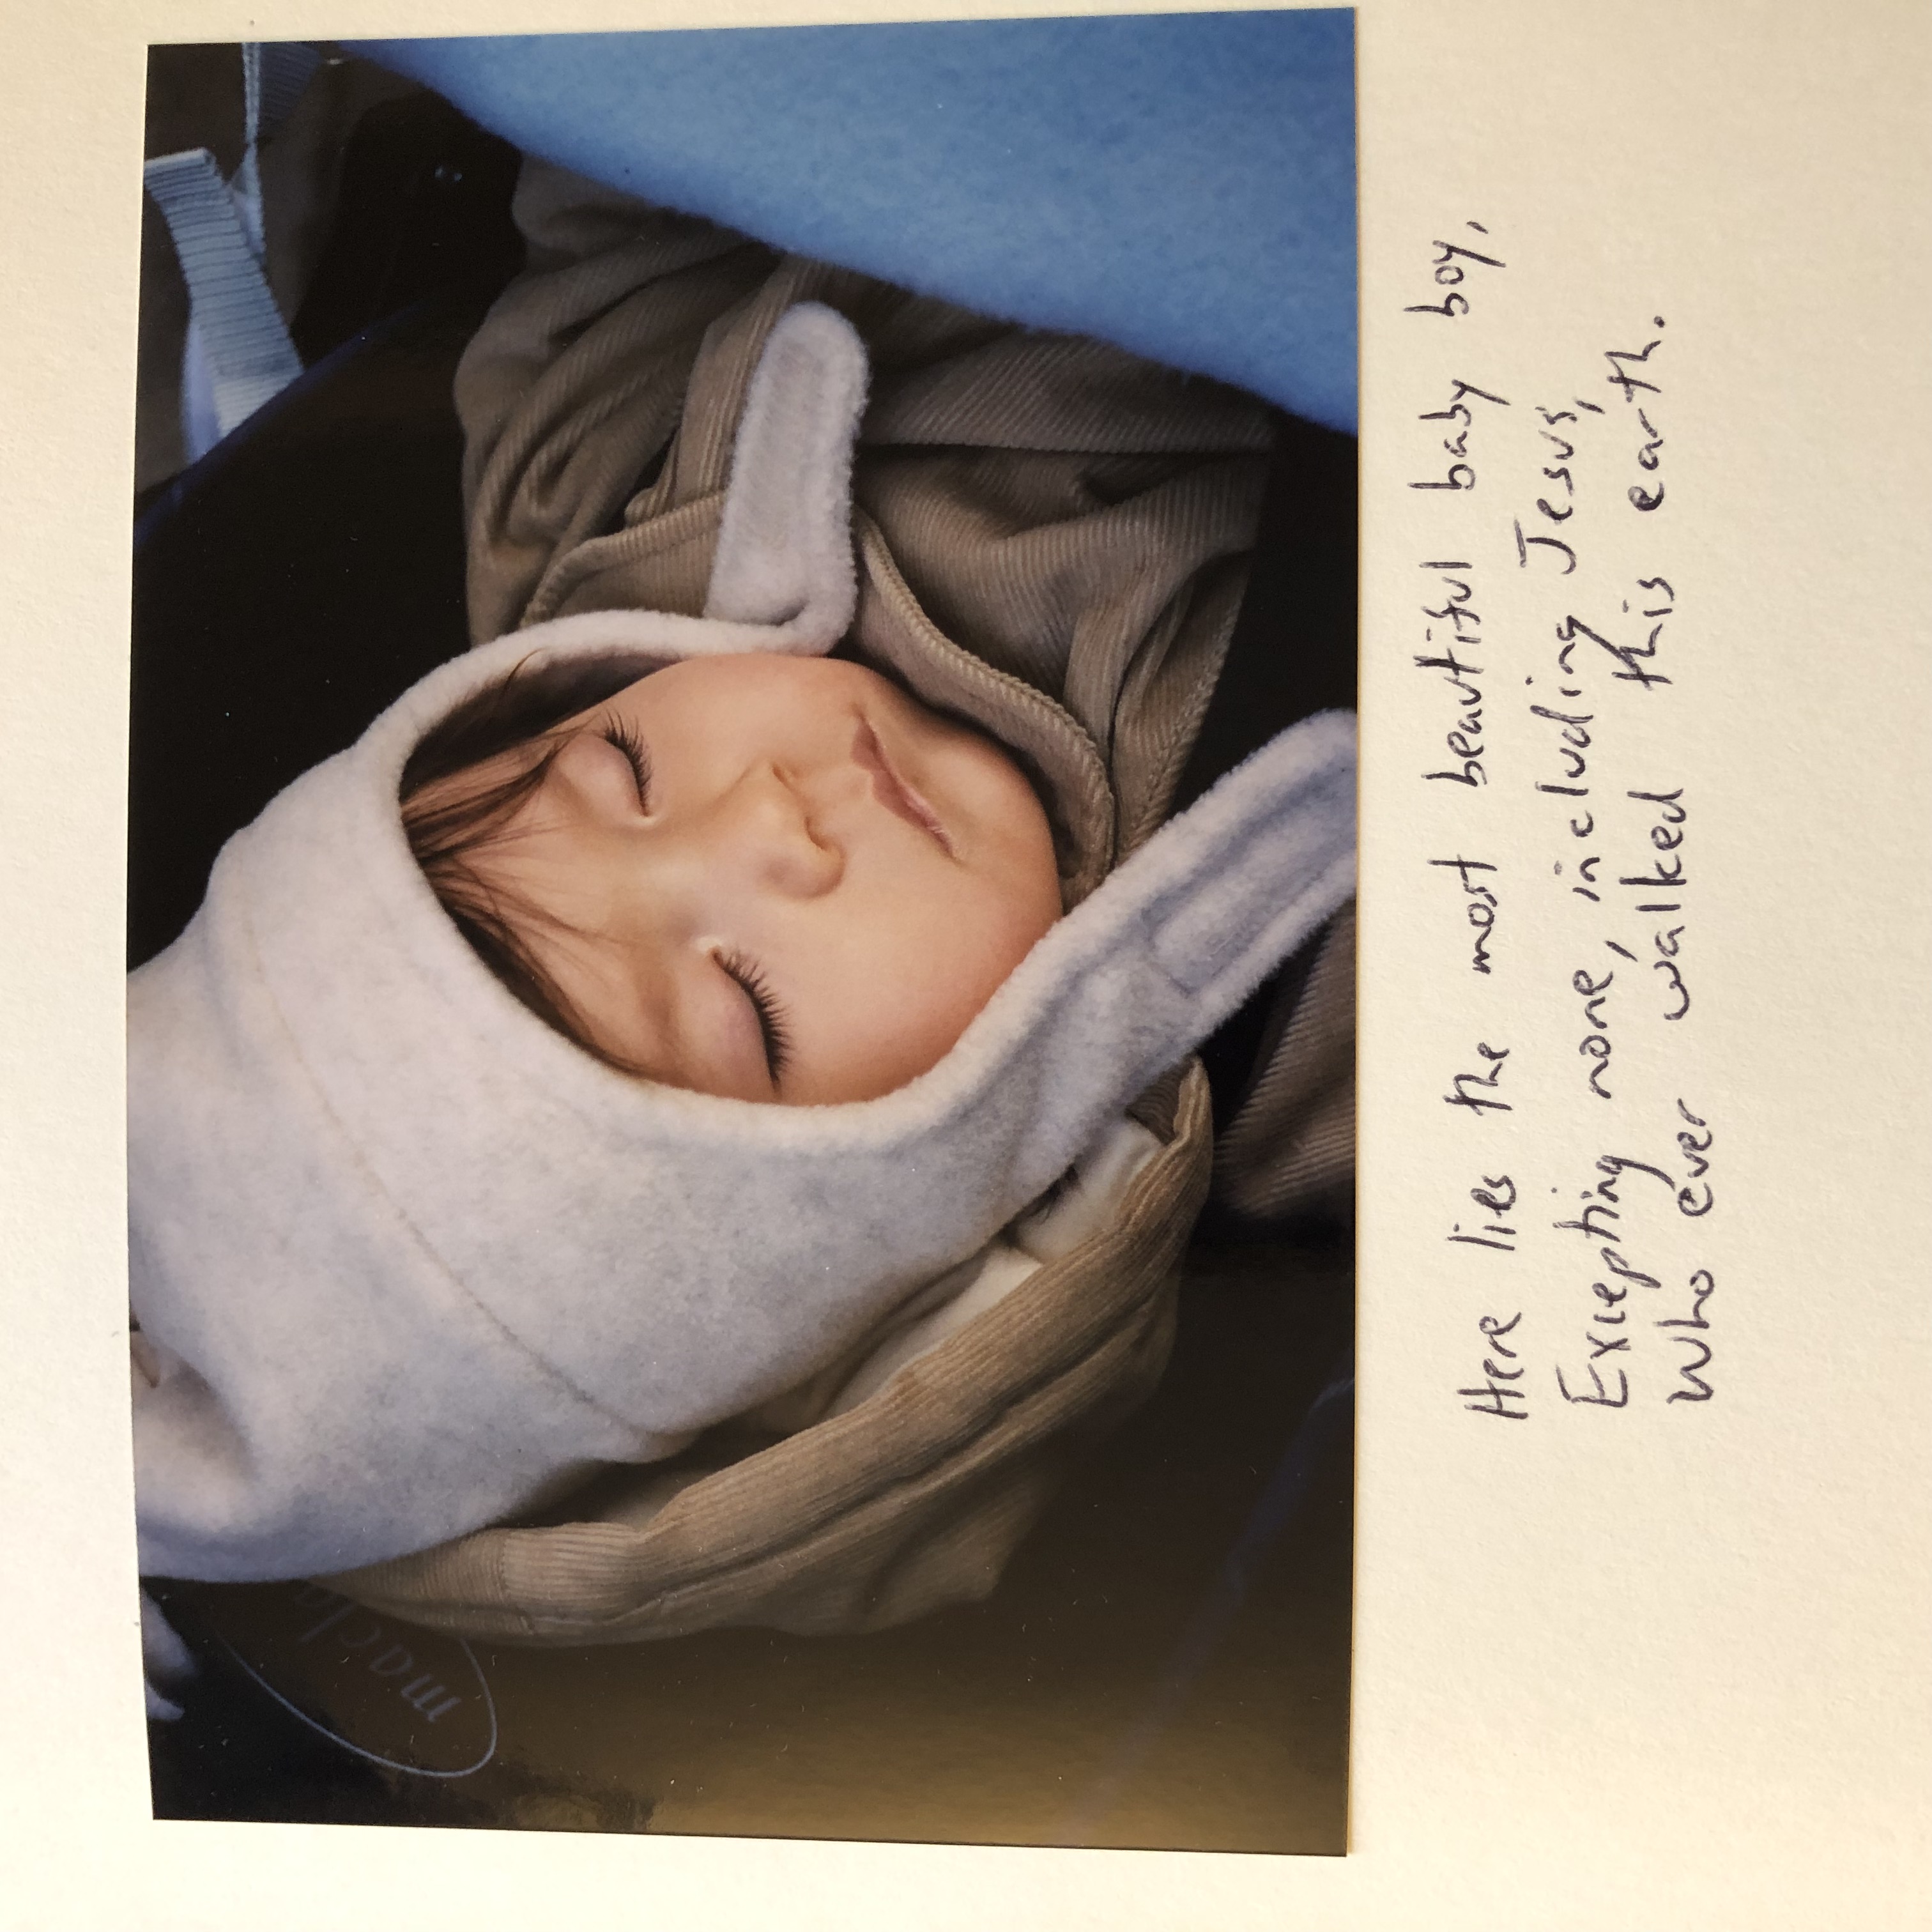 macla
Here lies the most beautiful baby boy,
Excepting none, including Jesus,
Who ever walked this earth.